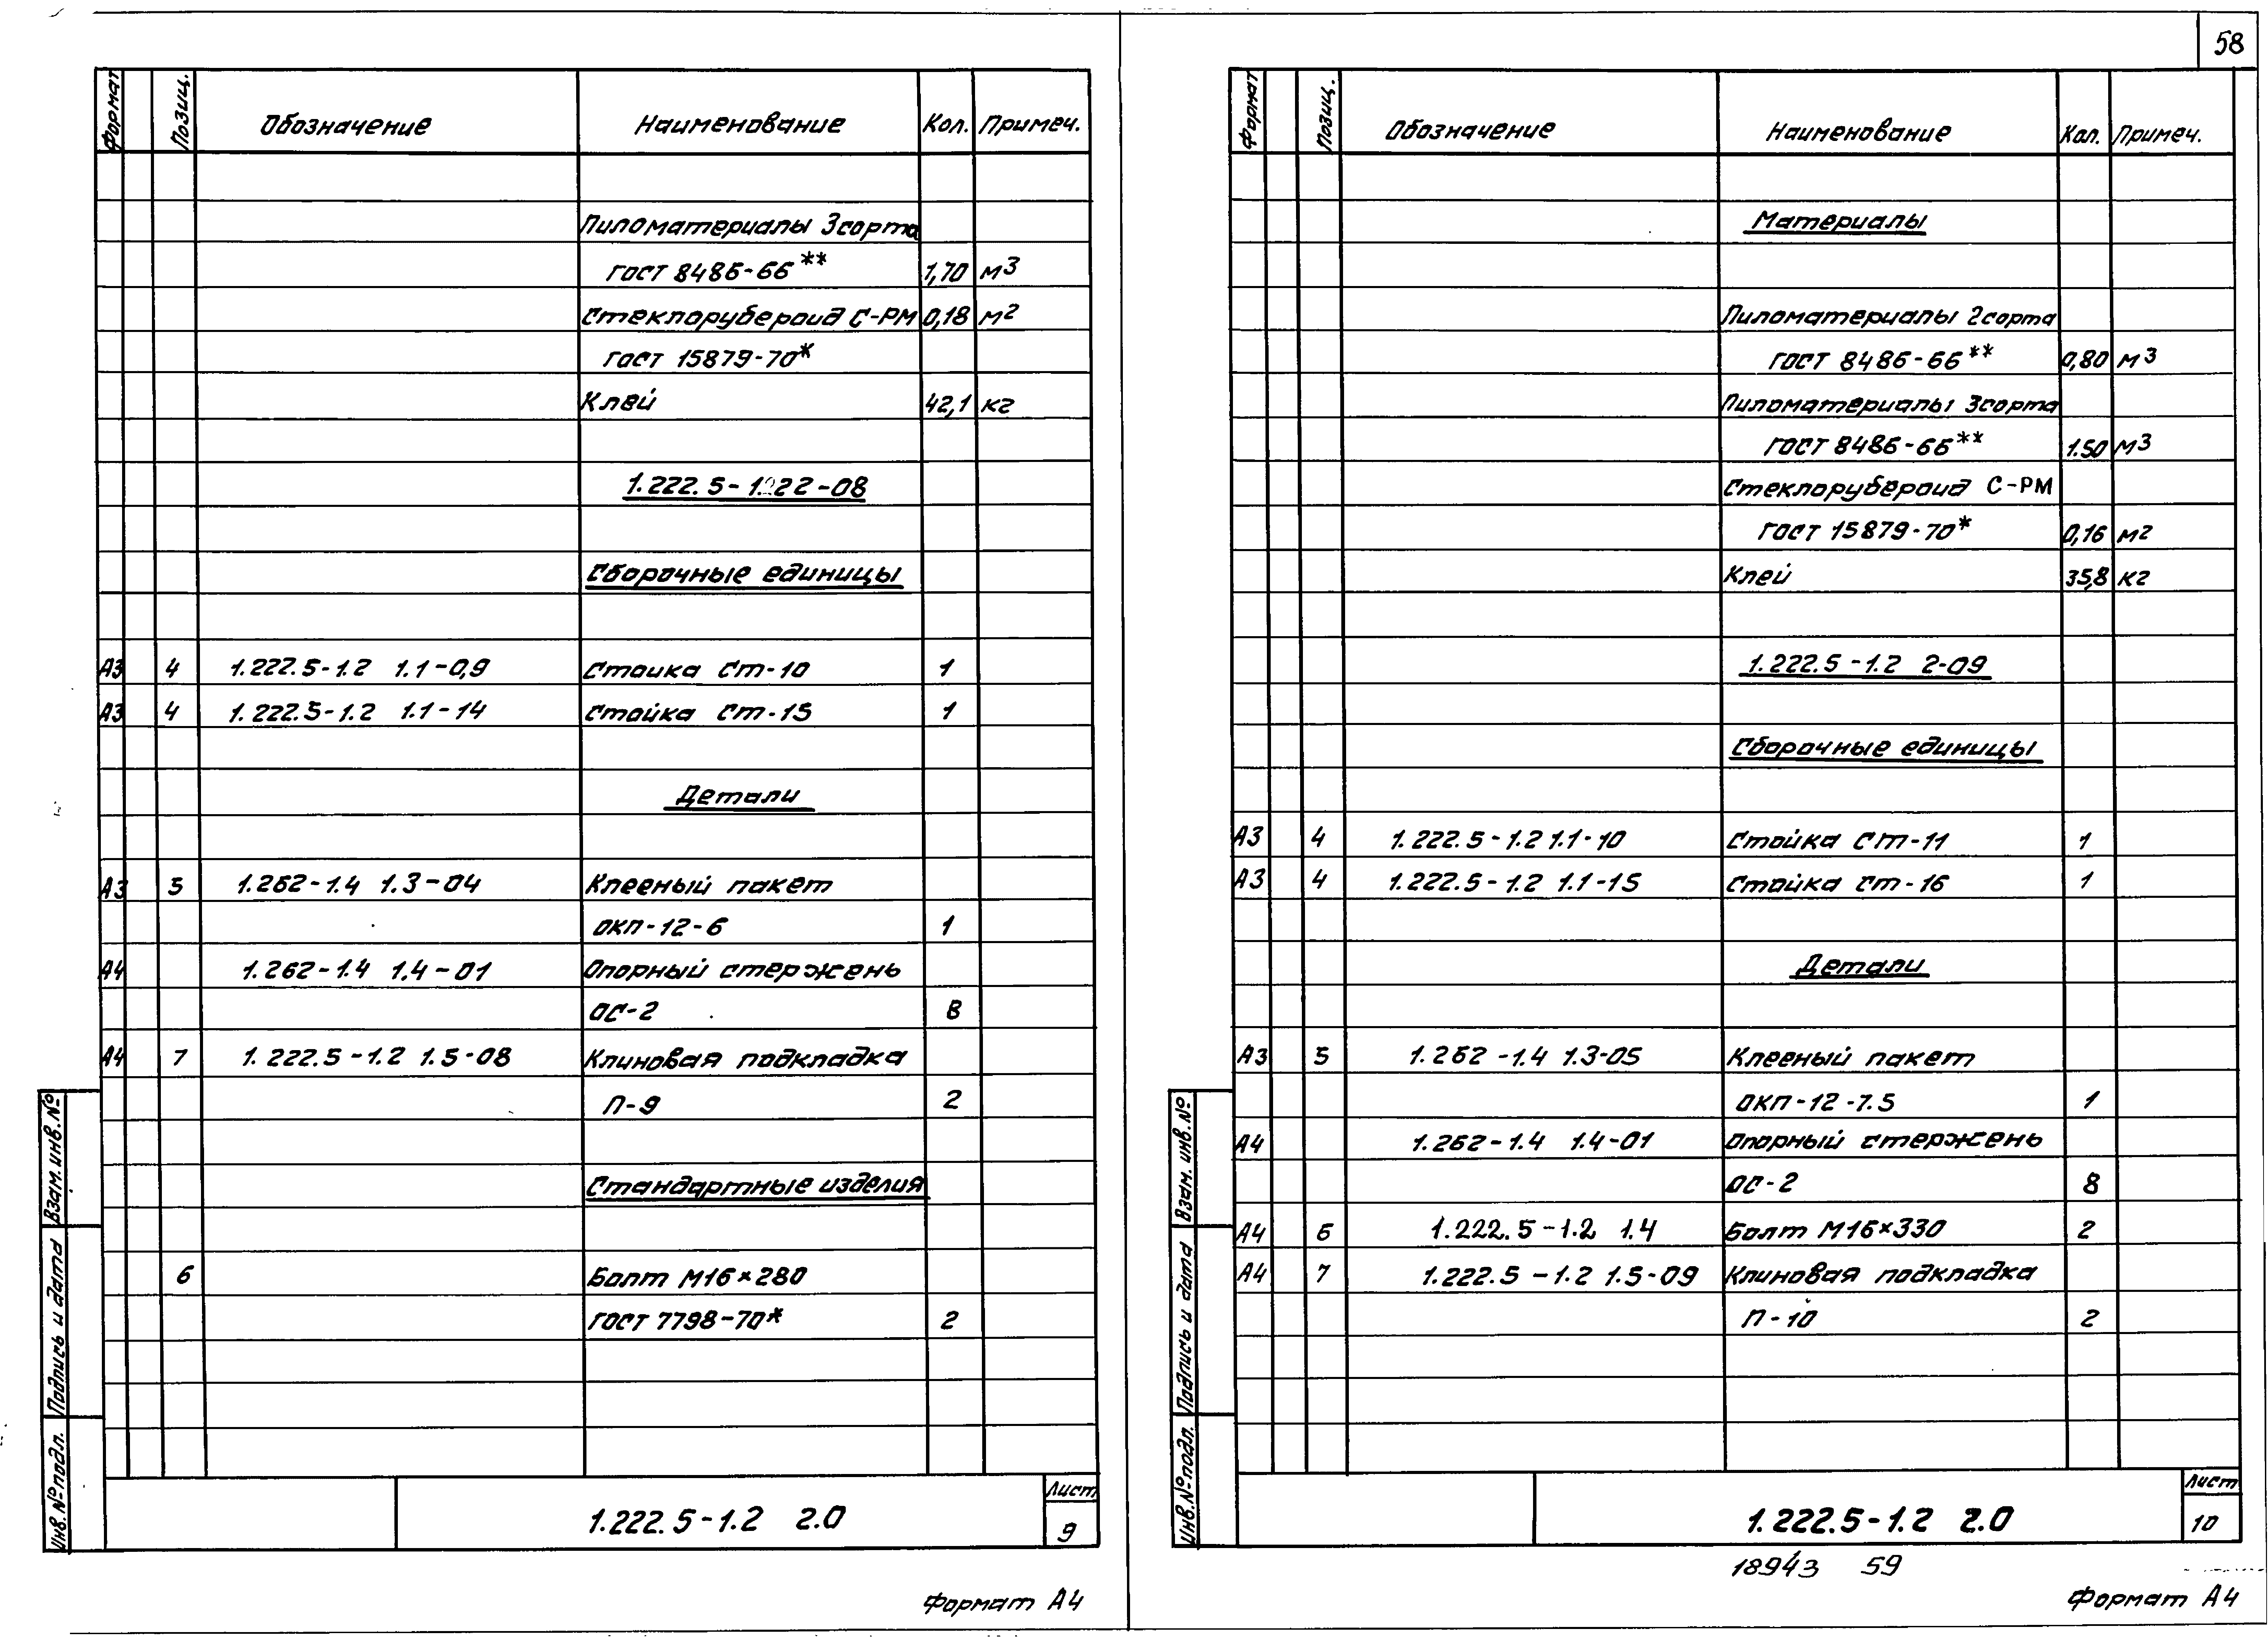 58
Формат Позиц. Обозначение Наименование Кол. Примеч.
Пиломатериалы 3 сорта
ГОСТ 8486-66** 1,70 м3
Стеклорубероид С-РМ 0,18 м2
ГОСТ 15879-70*
Клей 42,1 кг
1.222.5-1.222-08
Сборочные единицы
А3 4 1.222.5-1.2 1.1-0,9 Стойка Ст-10 1
А3 4 1.222.5-1.2 1.1-14 Стойка Ст-15 1
Детали
А3 5 1.262-1.4 1.3-04 Клееный пакет
ОКП-12-6 1
А4 1.262-1.4 1.4-01 Опорный стержень
ОС-2 8
А4 7 1.222.5-1.2 1.5-08 Клиновая подкладка
П-9 2
Стандартные изделия
6 Болт М16×280
ГОСТ 7798-70* 2
Взам. инв. №
Подпись и дата
Инв. № подл.
1.222.5-1.2 2.0
Лист
9
Формат А4
Формат Позиц. Обозначение Наименование Кол. Примеч.
Материалы
Пиломатериалы 2 сорта
ГОСТ 8486-66** 0,80 м3
Пиломатериалы 3 сорта
ГОСТ 8486-66** 1.50 м3
Стеклорубероид С-РМ
ГОСТ 15879-70* 0,16 м2
Клей 35,8 кг
1.222.5-1.2 2-09
Сборочные единицы
А3 4 1.222.5-1.2 1.1-10 Стойка СТ-11 1
А3 4 1.222.5-1.2 1.1-15 Стойка Ст-16 1
Детали
А3 5 1.262-1.4 1.3-05 Клееный пакет
ОКП-12-7.5 1
А4 1.262-1.4 1.4-01 Опорный стержень
ОС-2 8
А4 6 1.222.5-1.2 1.4 Болт М16×330 2
А4 7 1.222.5-1.2 1.5-09 Клиновая подкладка
П-10 2
Взам. инв. №
Подпись и дата
Инв. № подл.
1.222.5-1.2 2.0
Лист
10
18943 59
Формат А4